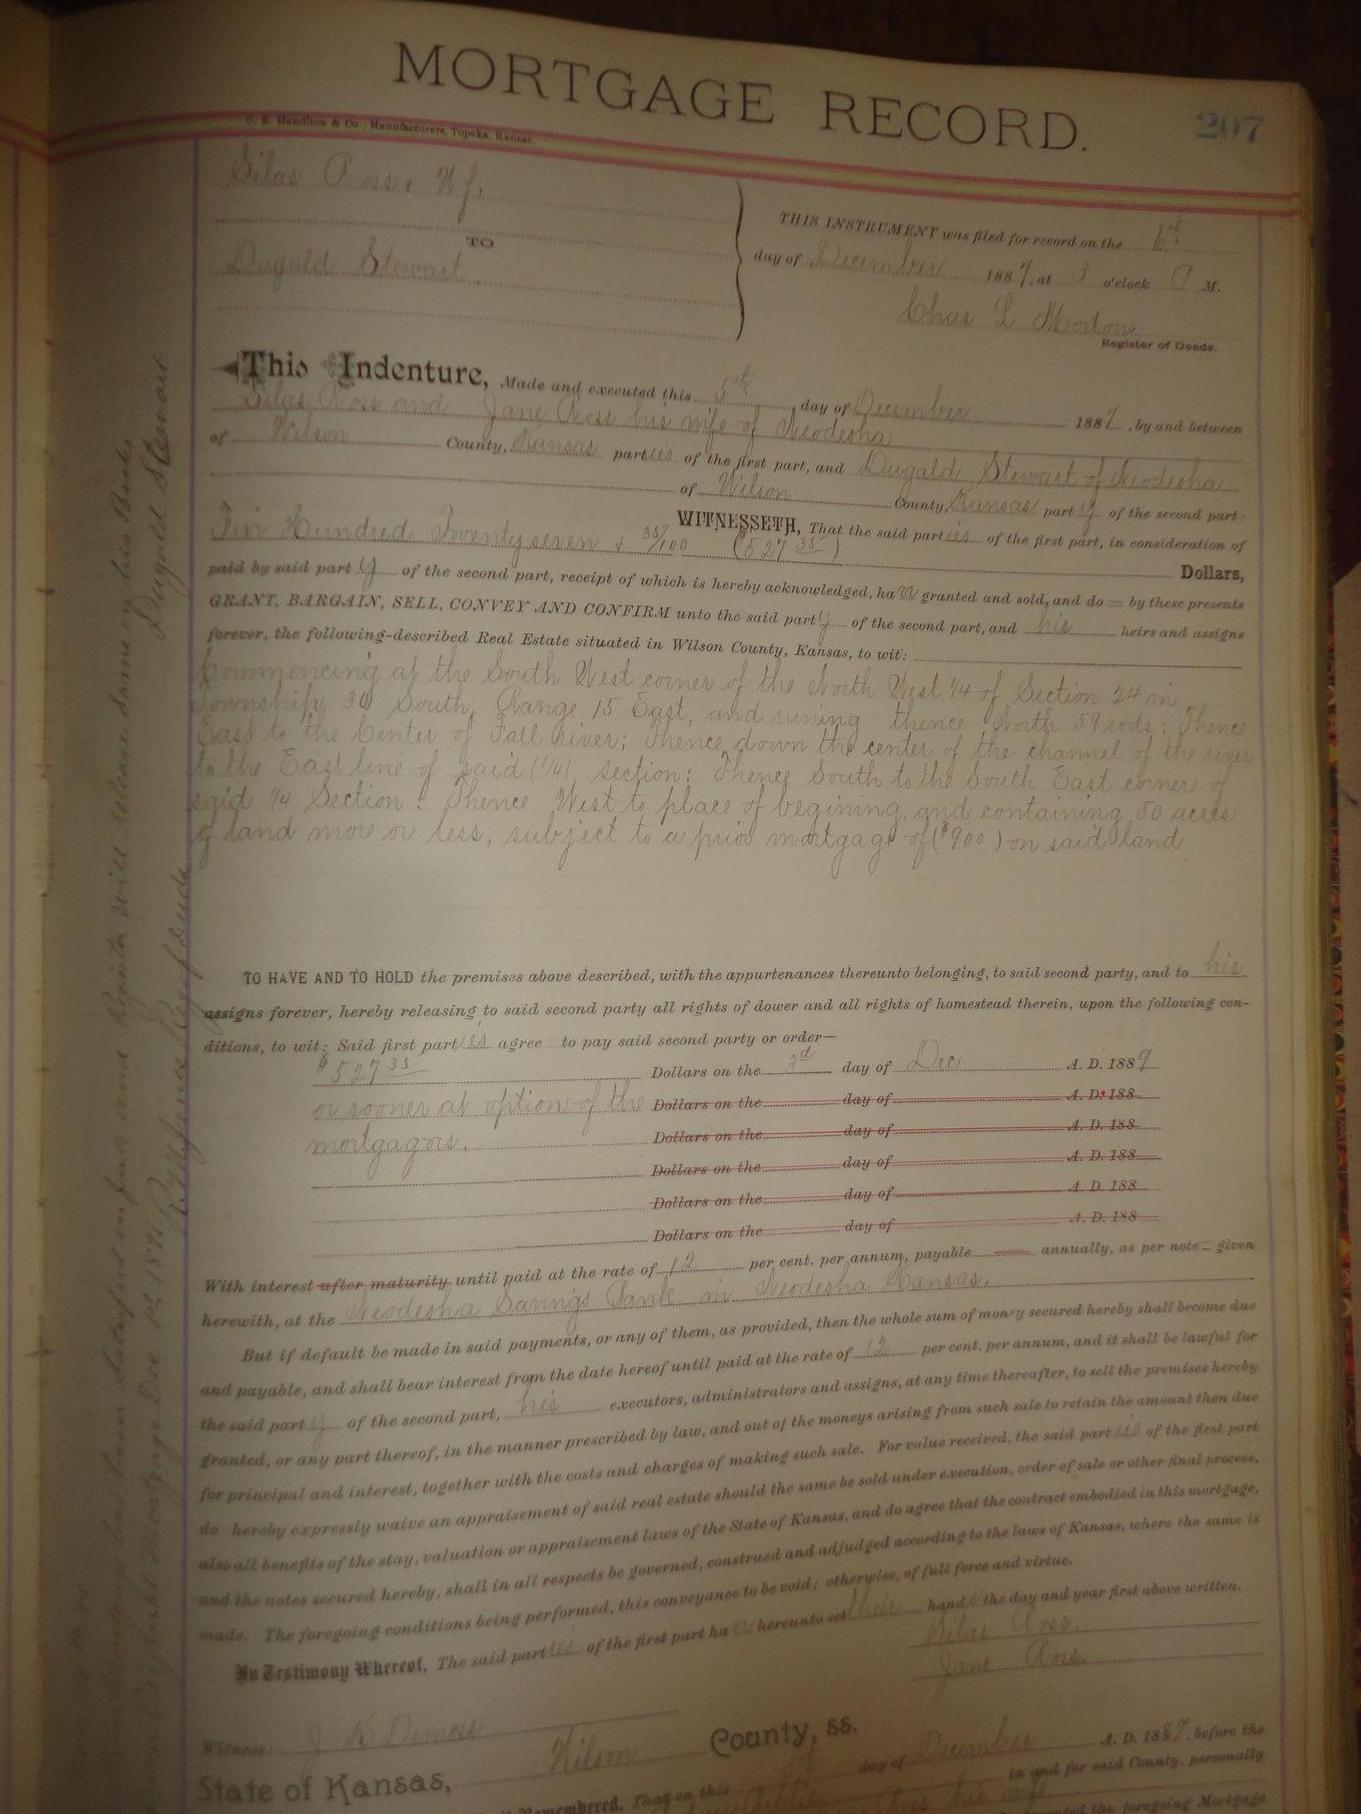 MORTGAGE RECORD.
207
C. B. Hamilton & Co., Manufacturers, Topeka, Kansas.
Silas Ross & Wf.
TO
Dugald Stewart.
THIS INSTRUMENT was filed for record on the 6th
day of December 1887, at 3 o'clock P M.
Chas L Morton
Register of Deeds.
This Indenture, Made and executed this 5th day of December 1887, by and between
Silas Ross and Jane Ross his wife of Neodesha
of Wilson County, Kansas parties of the first part, and Dugald Stewart of Neodesha
of Wilson County, Kansas party of the second part:
WITNESSETH, That the said parties of the first part, in consideration of
Five Hundred Twenty seven & 35/100 ($527 35) Dollars,
paid by said party of the second part, receipt of which is hereby acknowledged, have granted and sold, and do by these presents
GRANT, BARGAIN, SELL, CONVEY AND CONFIRM unto the said party of the second part, and his heirs and assigns
forever, the following-described Real Estate situated in Wilson County, Kansas, to wit:
Commencing at the South West corner of the North West 1/4 of Section 24 in
Township 30 South, Range 15 East, and runing thence North 59 rods: Thence
East to the Center of Fall river; Thence down the center of the channel of the river
to the East line of said (1/4) section: Thence South to the South East corner of
said 1/4 Section: Thence West to place of begining, and containing 50 acres
of land more or less, subject to a prior mortgage of ($900) on said land
TO HAVE AND TO HOLD the premises above described, with the appurtenances thereunto belonging, to said second party, and to his
assigns forever, hereby releasing to said second party all rights of dower and all rights of homestead therein, upon the following con-
ditions, to wit: Said first parties agree to pay said second party or order—
$527 35 Dollars on the 3rd day of Dec A. D. 1889
or sooner at option of the Dollars on the day of A. D. 188
mortgagors. Dollars on the day of A. D. 188
Dollars on the day of A. D. 188
Dollars on the day of A. D. 188
Dollars on the day of A. D. 188
With interest after maturity until paid at the rate of 12 per cent. per annum, payable annually, as per note given
herewith, at the Neodesha Savings Bank in Neodesha Kansas.
But if default be made in said payments, or any of them, as provided, then the whole sum of money secured hereby shall become due
and payable, and shall bear interest from the date hereof until paid at the rate of 12 per cent. per annum, and it shall be lawful for
the said party of the second part, his executors, administrators and assigns, at any time thereafter, to sell the premises hereby
granted, or any part thereof, in the manner prescribed by law, and out of the moneys arising from such sale to retain the amount then due
for principal and interest, together with the costs and charges of making such sale. For value received, the said parties of the first part
do hereby expressly waive an appraisement of said real estate should the same be sold under execution, order of sale or other final process,
also all benefits of the stay, valuation or appraisement laws of the State of Kansas, and do agree that the contract embodied in this mortgage,
and the notes secured hereby, shall in all respects be governed, construed and adjudged according to the laws of Kansas, where the same is
made. The foregoing conditions being performed, this conveyance to be void; otherwise, of full force and virtue.
In Testimony Whereof, The said parties of the first part ha hereunto set their hands the day and year first above written.
Silas Ross.
Jane Ross.
Witness: J K Demoss
State of Kansas, Wilson County, ss.
Remembered, That on this day of December A. D. 1887, before the
in and for said County, personally
his wife
the foregoing Mortgage
has been satisfied in full and Register will release same on his Books
Mortgage Due 1891
Dugald Stewart
Reg of Deeds